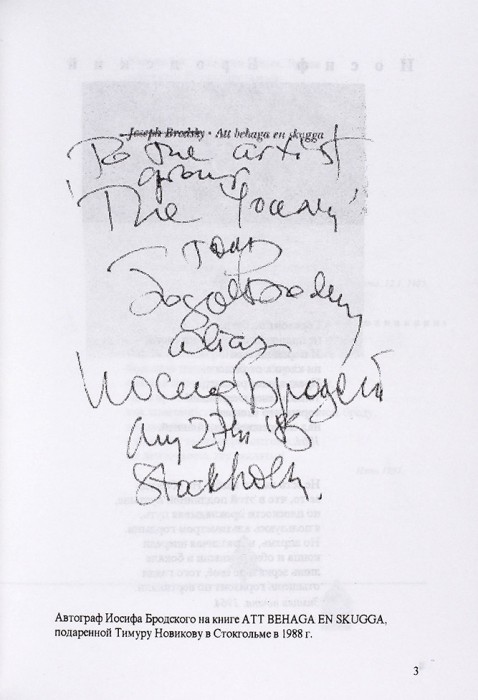 Joseph Brodsky • Att behaga en skugga
To the artist
group
'The
Joseph Brodsky
alias
Иосиф Бродский
Aug 27th '88
Stockholm.
Автограф Иосифа Бродского на книге ATT BEHAGA EN SKUGGA,
подаренной Тимуру Новикову в Стокгольме в 1988 г.
3